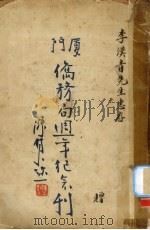 李漢青先生惠存
厦門
僑務局週年紀念刊
贈